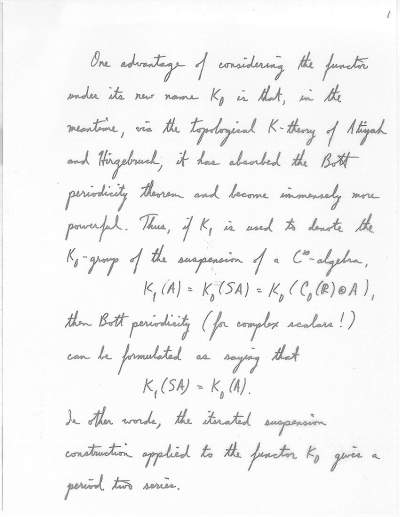 1
One advantage of considering the functor
under its new name K₀ is that, in the
meantime, via the topological K-theory of Atiyah
and Hirzebruch, it has absorbed the Bott
periodicity theorem and become immensely more
powerful. Thus, if K₁ is used to denote the
K₀-group of the suspension of a C*-algebra,
K₁(A) = K₀(SA) = K₀(C₀(ℝ)⊗A),
then Bott periodicity (for complex scalars!)
can be formulated as saying that
K₁(SA) = K₀(A).
In other words, the iterated suspension
construction applied to the functor K₀ gives a
period two series.